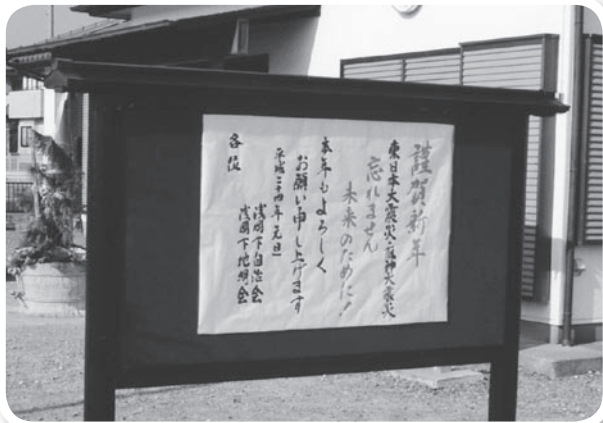 謹賀新年
東日本大震災・阪神大震災
忘れません
未来のために！
本年もよろしく
お願い申し上げます
平成二十四年元旦
浅間下自治会
浅間下地明会
各位